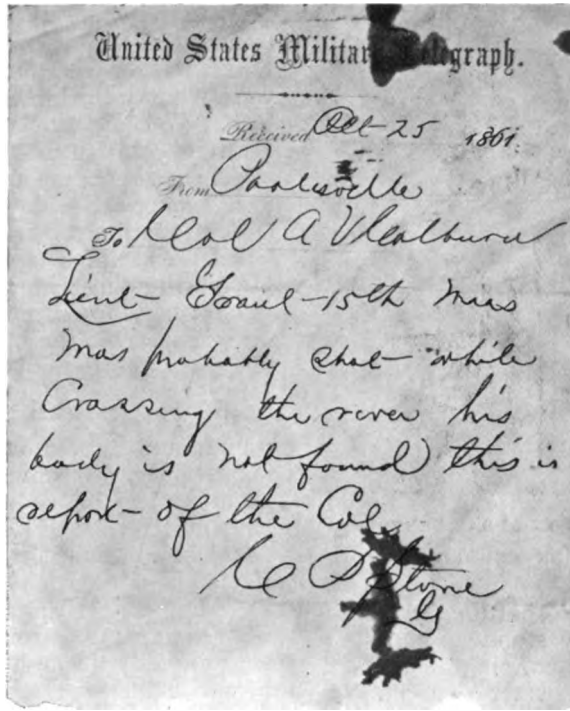 United States Military Telegraph.
Received Oct 25 1861.
From Poolesville
To Col A V Colburn
Lieut Grout 15th Mass
was probably shot while
Crossing the river his
body is not found this is
report of the Col
C P Stone